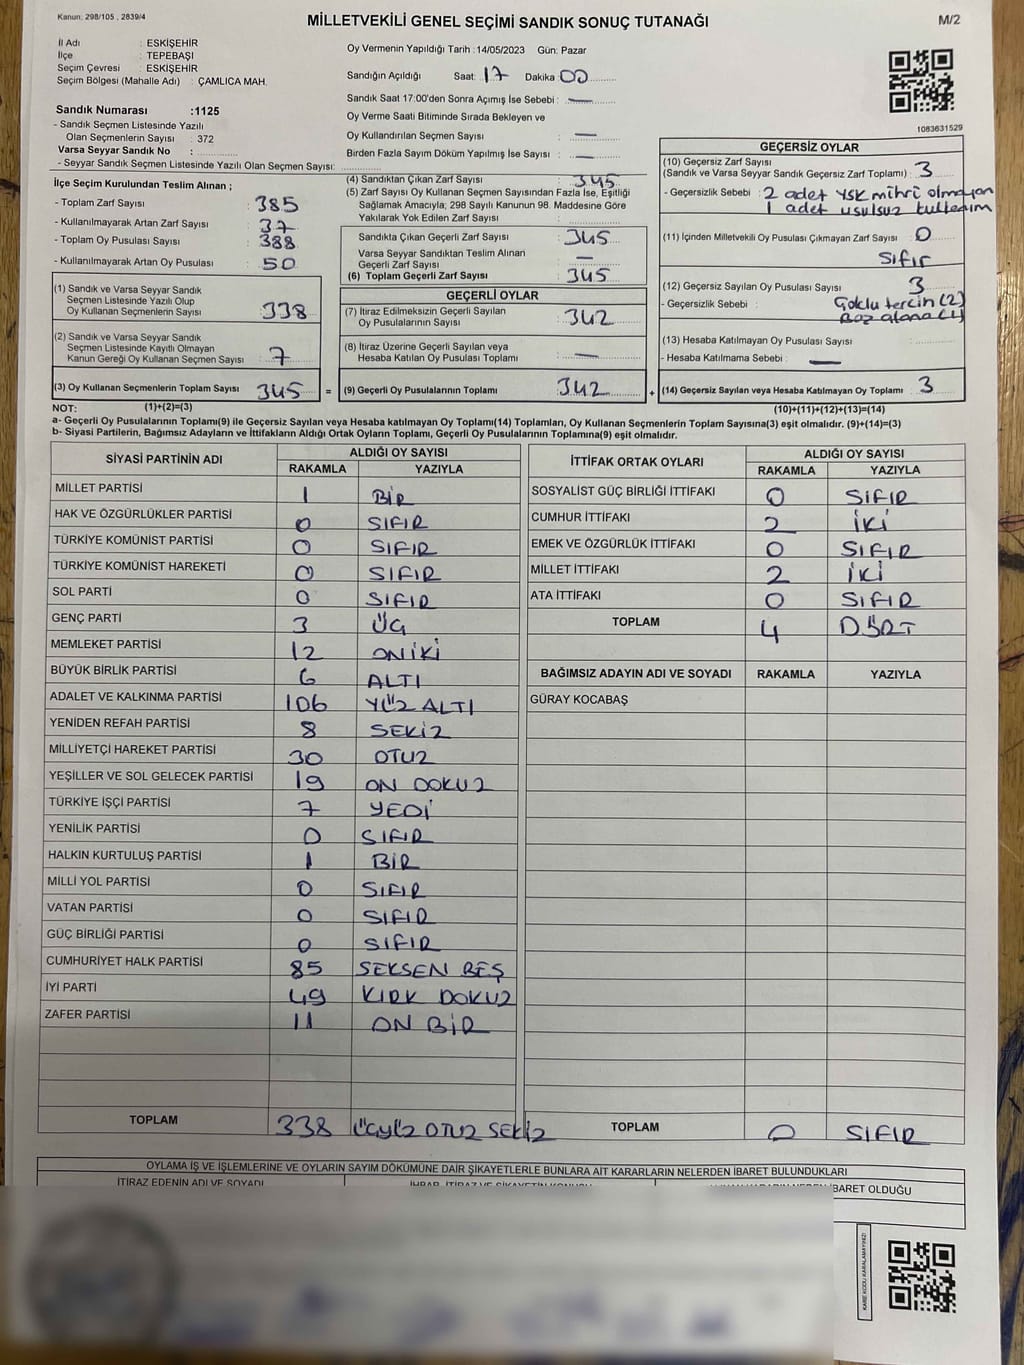 Kanun: 298/105 , 2839/4
MİLLETVEKİLİ GENEL SEÇİMİ SANDIK SONUÇ TUTANAĞI
M/2
İl Adı : ESKİŞEHİR
İlçe : TEPEBAŞI
Seçim Çevresi : ESKİŞEHİR
Seçim Bölgesi (Mahalle Adı) : ÇAMLICA MAH.
Sandık Numarası :1125
- Sandık Seçmen Listesinde Yazılı
Olan Seçmenlerin Sayısı : 372
Varsa Seyyar Sandık No :
- Seyyar Sandık Seçmen Listesinde Yazılı Olan Seçmen Sayısı:
Oy Vermenin Yapıldığı Tarih : 14/05/2023 Gün: Pazar
Sandığın Açıldığı Saat: 17 Dakika : 00
Sandık Saat 17:00'den Sonra Açımış İse Sebebi : —
Oy Verme Saati Bitiminde Sırada Bekleyen ve
Oy Kullandırılan Seçmen Sayısı : —
Birden Fazla Sayım Döküm Yapılmış İse Sayısı : —
1083631529
İlçe Seçim Kurulundan Teslim Alınan ;
- Toplam Zarf Sayısı : 385
- Kullanılmayarak Artan Zarf Sayısı : 37
- Toplam Oy Pusulası Sayısı : 388
- Kullanılmayarak Artan Oy Pusulası : 50
(1) Sandık ve Varsa Seyyar Sandık
Seçmen Listesinde Yazılı Olup
Oy Kullanan Seçmenlerin Sayısı : 338
(2) Sandık ve Varsa Seyyar Sandık
Seçmen Listesinde Kayıtlı Olmayan
Kanun Gereği Oy Kullanan Seçmen Sayısı : 7
(3) Oy Kullanan Seçmenlerin Toplam Sayısı 345 =
(4) Sandıktan Çıkan Zarf Sayısı : 345
(5) Zarf Sayısı Oy Kullanan Seçmen Sayısından Fazla İse, Eşitliği
Sağlamak Amacıyla; 298 Sayılı Kanunun 98. Maddesine Göre
Yakılarak Yok Edilen Zarf Sayısı :
Sandıkla Çıkan Geçerli Zarf Sayısı : 345
Varsa Seyyar Sandıktan Teslim Alınan
Geçerli Zarf Sayısı : —
(6) Toplam Geçerli Zarf Sayısı : 345
GEÇERLİ OYLAR
(7) İtiraz Edilmeksizin Geçerli Sayılan
Oy Pusulalarının Sayısı : 342
(8) İtiraz Üzerine Geçerli Sayılan veya
Hesaba Katılan Oy Pusulası Toplamı : —
(9) Geçerli Oy Pusulalarının Toplamı : 342 +
GEÇERSİZ OYLAR
(10) Geçersiz Zarf Sayısı
(Sandık ve Varsa Seyyar Sandık Geçersiz Zarf Toplamı) : 3
- Geçersizlik Sebebi : 2 adet YSK mührü olmayan
1 adet usulsuz
(11) İçinden Milletvekili Oy Pusulası Çıkmayan Zarf Sayısı : 0
sıfır
(12) Geçersiz Sayılan Oy Pusulası Sayısı : 3
- Geçersizlik Sebebi : Çoklu tercih (2)
Boş
(13) Hesaba Katılmayan Oy Pusulası Sayısı :
- Hesaba Katılmama Sebebi : —
(14) Geçersiz Sayılan veya Hesaba Katılmayan Oy Toplamı : 3
NOT: (1)+(2)=(3)
(10)+(11)+(12)+(13)=(14)
a- Geçerli Oy Pusulalarının Toplamı(9) ile Geçersiz Sayılan veya Hesaba katılmayan Oy Toplamı(14) Toplamları, Oy Kullanan Seçmenlerin Toplam Sayısına(3) eşit olmalıdır. (9)+(14)=(3)
b- Siyasi Partilerin, Bağımsız Adayların ve İttifakların Aldığı Ortak Oyların Toplamı, Geçerli Oy Pusulalarının Toplamına(9) eşit olmalıdır.
SİYASİ PARTİNİN ADI ALDIĞI OY SAYISI
RAKAMLA YAZIYLA
MİLLET PARTİSİ 1 BİR
HAK VE ÖZGÜRLÜKLER PARTİSİ 0 SIFIR
TÜRKİYE KOMÜNİST PARTİSİ 0 SIFIR
TÜRKİYE KOMÜNİST HAREKETİ 0 SIFIR
SOL PARTİ 0 SIFIR
GENÇ PARTİ 3 ÜÇ
MEMLEKET PARTİSİ 12 ONİKİ
BÜYÜK BİRLİK PARTİSİ 6 ALTI
ADALET VE KALKINMA PARTİSİ 106 YÜZ ALTI
YENİDEN REFAH PARTİSİ 8 SEKİZ
MİLLİYETÇİ HAREKET PARTİSİ 30 OTUZ
YEŞİLLER VE SOL GELECEK PARTİSİ 19 ON DOKUZ
TÜRKİYE İŞÇİ PARTİSİ 7 YEDİ
YENİLİK PARTİSİ 0 SIFIR
HALKIN KURTULUŞ PARTİSİ 1 BİR
MİLLİ YOL PARTİSİ 0 SIFIR
VATAN PARTİSİ 0 SIFIR
GÜÇ BİRLİĞİ PARTİSİ 0 SIFIR
CUMHURİYET HALK PARTİSİ 85 SEKSEN BEŞ
İYİ PARTİ 49 KIRK DOKUZ
ZAFER PARTİSİ 11 ON BİR
TOPLAM 338 ÜÇYÜZ OTUZ SEKİZ
İTTİFAK ORTAK OYLARI ALDIĞI OY SAYISI
RAKAMLA YAZIYLA
SOSYALİST GÜÇ BİRLİĞİ İTTİFAKI 0 SIFIR
CUMHUR İTTİFAKI 2 İKİ
EMEK VE ÖZGÜRLÜK İTTİFAKI 0 SIFIR
MİLLET İTTİFAKI 2 İKİ
ATA İTTİFAKI 0 SIFIR
TOPLAM 4 DÖRT
BAĞIMSIZ ADAYIN ADI VE SOYADI RAKAMLA YAZIYLA
GÜRAY KOCABAŞ
TOPLAM 0 SIFIR
OYLAMA İŞ VE İŞLEMLERİNE VE OYLARIN SAYIM DÖKÜMÜNE DAİR ŞİKAYETLERLE BUNLARA AİT KARARLARIN NELERDEN İBARET BULUNDUKLARI
İTİRAZ EDENİN ADI VE SOYADI
İHBAR, İTİRAZ VE ŞİKAYETİN KONUSU
İBARET OLDUĞU
KARE KODU KARALAMAYINIZ!